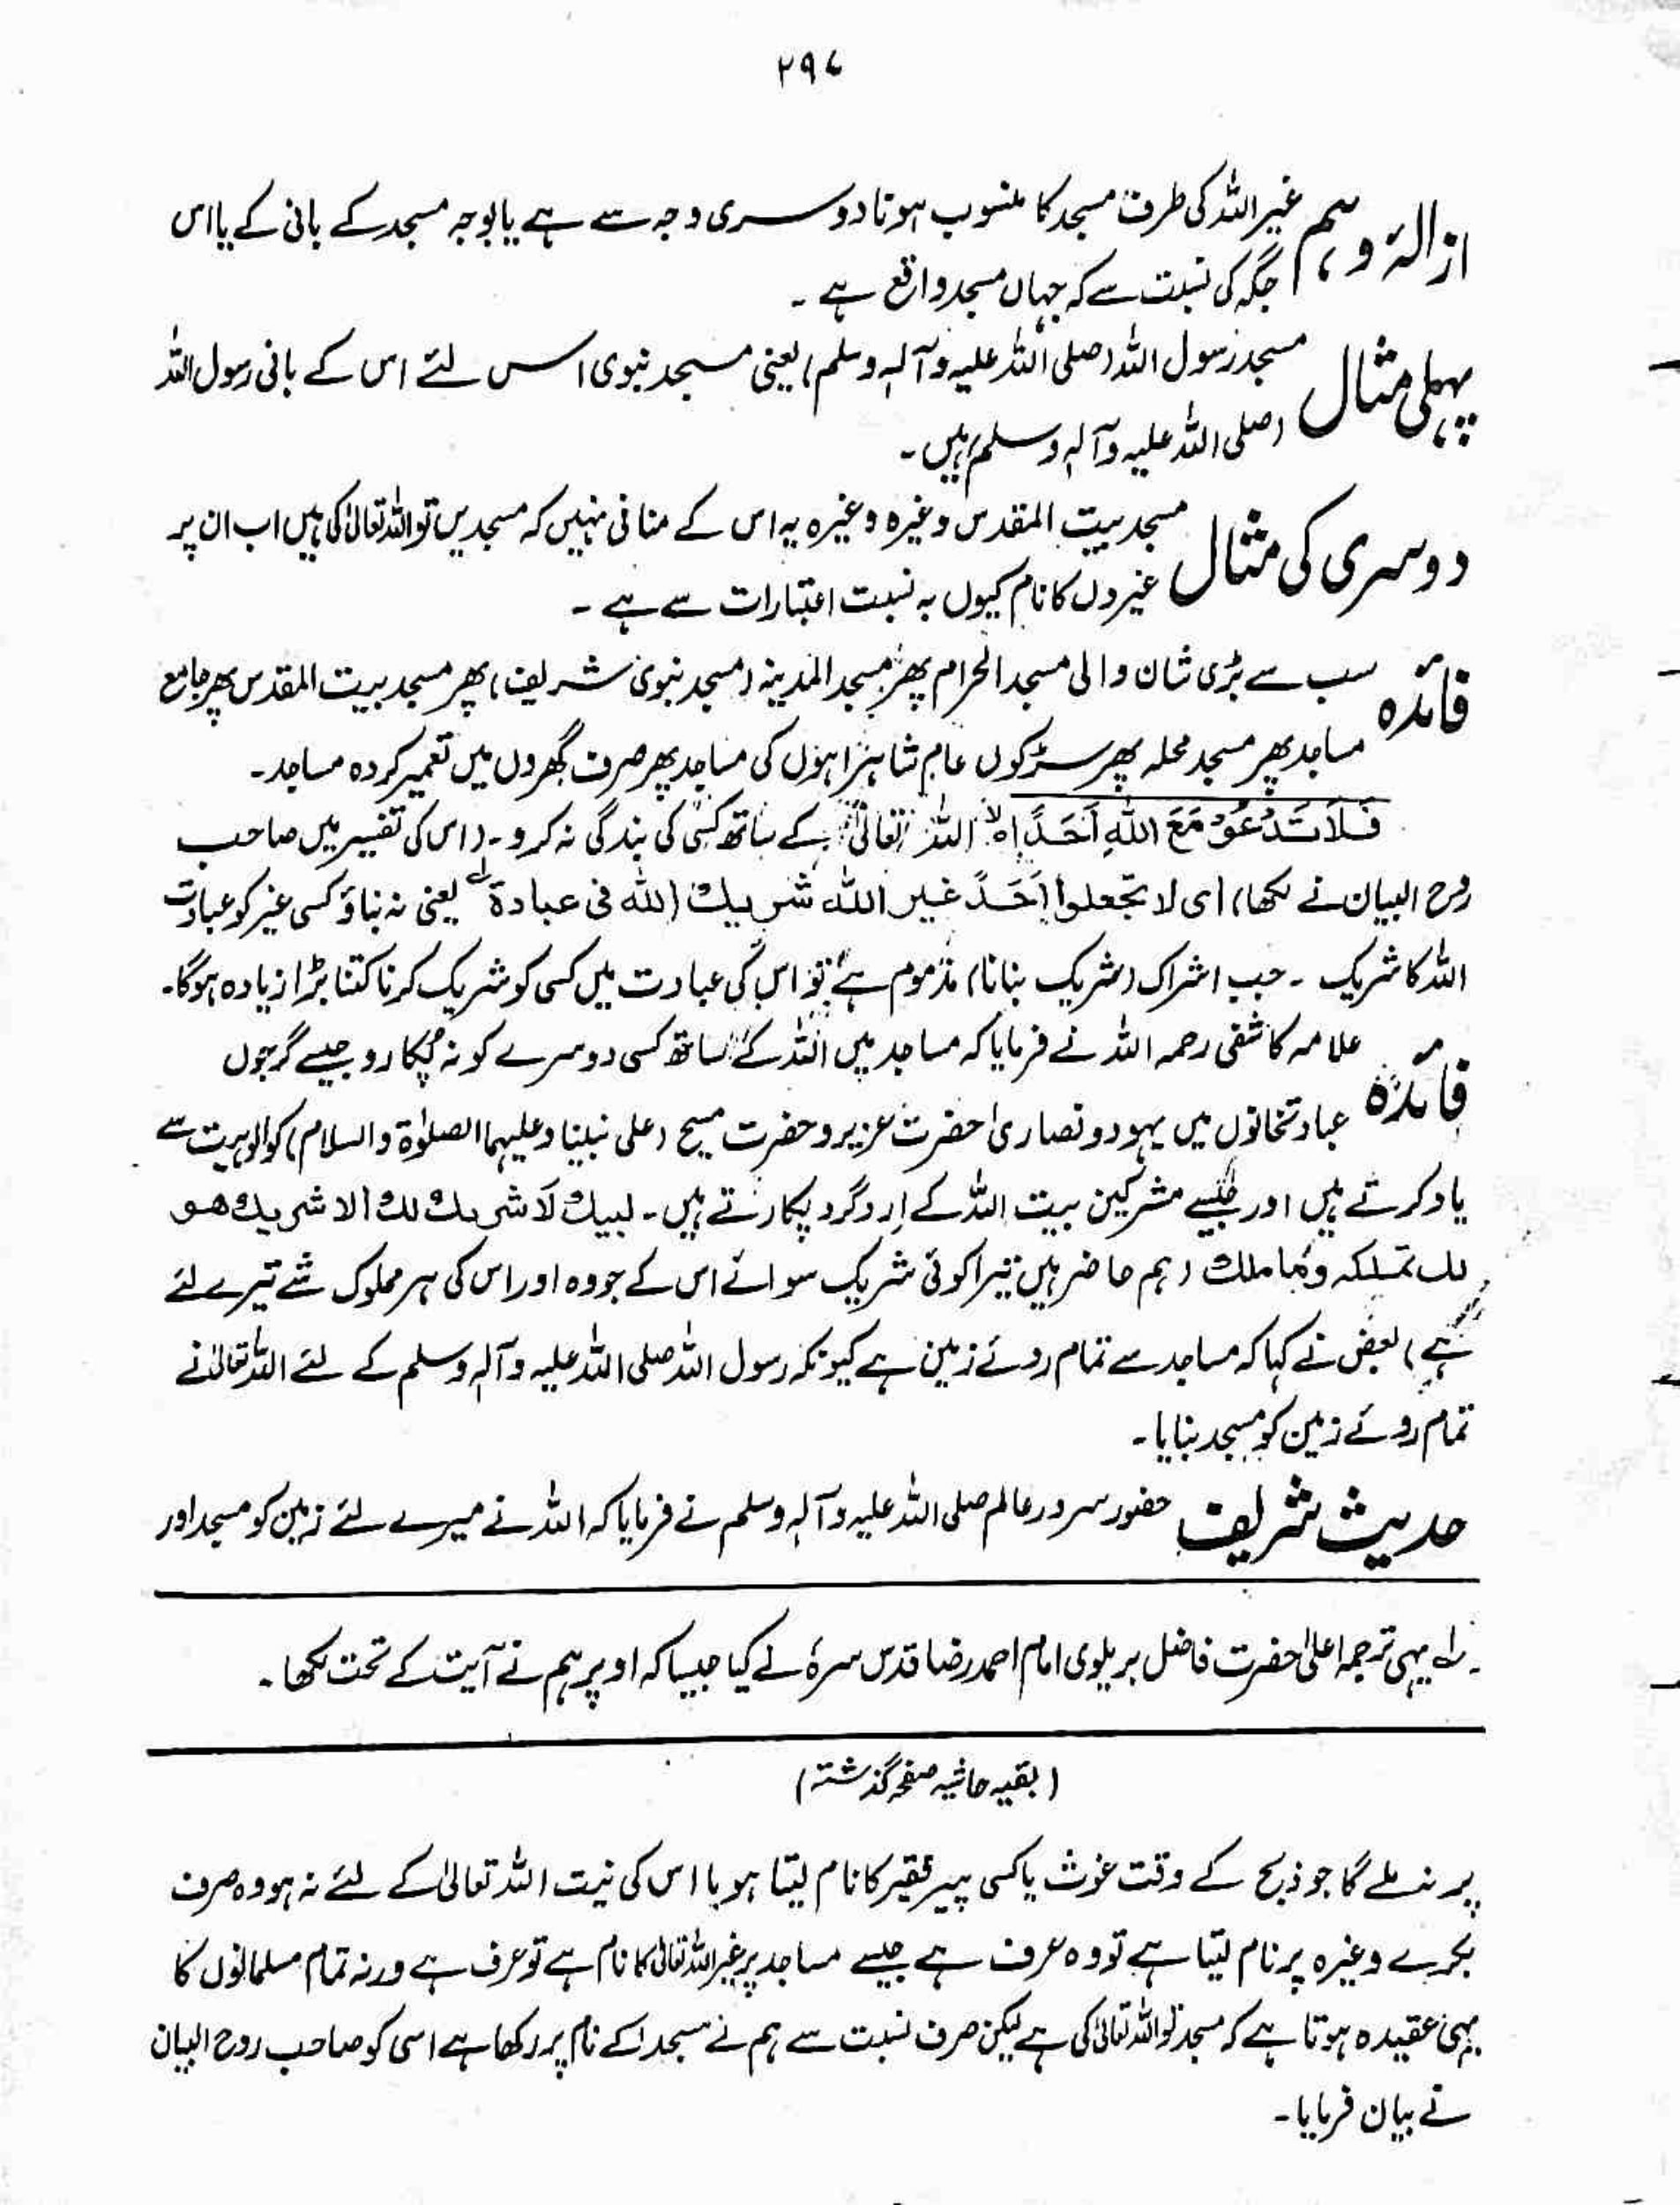 ۲۹۷
ازالۂ وہم غیر اللہ کی طرف مسجد کا منسوب ہونا دوسری وجہ سے ہے یا بوجہ مسجد کے بانی کے یا اس
جگہ کی نسبت سے کہ جہاں مسجد واقع ہے ۔
پہلی مثال مسجد رسول اللہ (صلی اللہ علیہ وآلہٖ وسلم) یعنی مسجد نبوی اس لئے اس کے بانی رسول اللہ
(صلی اللہ علیہ وآلہٖ وسلم) ہیں ۔
دوسری کی مثال مسجد بیت المقدس وغیرہ وغیرہ یہ اس کے منافی نہیں کہ مسجدیں تو اللہ تعالیٰ کی ہیں اب ان پر
غیروں کا نام کیوں یہ نسبت اعتبارات سے ہے ۔
فائدہ سب سے بڑی شان والی مسجد الحرام پھر مسجد المدینہ (مسجد نبوی شریف) پھر مسجد بیت المقدس پھر جامع
مساجد پھر مسجد محلہ پھر سڑکوں عام شاہراہوں کی مساجد پھر صرف گھروں میں تعمیر کردہ مساجد ۔
فَلَا تَدْعُوْا مَعَ اللّٰہِ اَحَدًا ہ اللہ تعالیٰ کے ساتھ کسی کی بندگی نہ کرو ۔ (اس کی تفسیر میں صاحب
روح البیان نے لکھا) ای لا تجعلوا اَحَدً غیر اللہ شریک (للہ فی عبادۃ ؎۱ یعنی نہ بناؤ کسی غیر کو عبادت
اللہ کا شریک ۔ جب اشراک (شریک بنانا) مذموم ہے تو اس کی عبادت میں کسی کو شریک کرنا کتنا بڑا زیادہ ہوگا۔
فائدہ علامہ کاشفی رحمہ اللہ نے فرمایا کہ مساجد میں اللہ کے ساتھ کسی دوسرے کو نہ پکارو جیسے گرجوں
عبادتخانوں میں یہود و نصاریٰ حضرت عزیر و حضرت مسیح (علی نبینا وعلیہما الصلوٰۃ والسلام) کو الوہیت سے
یاد کرتے ہیں اور جیسے مشرکین بیت اللہ کے ارد گرد پکارتے ہیں ۔ لبیک لَا شریک لک الا شریک ھو
لک تملکہ وما ملک (ہم حاضر ہیں تیرا کوئی شریک سوائے اس کے جو وہ اور اس کی ہر مملوک شے تیرے لئے
ہے) بعض نے کہا کہ مساجد سے تمام روئے زمین ہے کیونکہ رسول اللہ صلی اللہ علیہ وآلہٖ وسلم کے لئے اللہ تعالیٰ نے
تمام روئے زمین کو مسجد بنایا ۔
حدیث شریف حضور سرور عالم صلی اللہ علیہ وآلہٖ وسلم نے فرمایا کہ اللہ نے میرے لئے زمین کو مسجد اور
؎۱ یہی ترجمہ اعلیٰ حضرت فاضل بریلوی امام احمد رضا قدس سرہٗ نے کیا جیسا کہ اوپر ہم نے آیت کے تحت لکھا ۔
(بقیہ حاشیہ صفحہ گذشتہ)
پر نہ ملے گا جو ذبح کے وقت غوث یا کسی پیر فقیر کا نام لیتا ہو یا اس کی نیت اللہ تعالیٰ کے لئے نہ ہو وہ صرف
بکرے وغیرہ پر نام لیتا ہے تو وہ عرف ہے جیسے مساجد پر غیر اللہ تعالیٰ کا نام ہے تو عرف ہے ورنہ تمام مسلمانوں کا
یہی عقیدہ ہوتا ہے کہ مسجد تو اللہ تعالیٰ کی ہے لیکن صرف نسبت سے ہم نے مسجد کے نام پر رکھا ہے اسی کو صاحب روح البیان
نے بیان فرمایا ۔